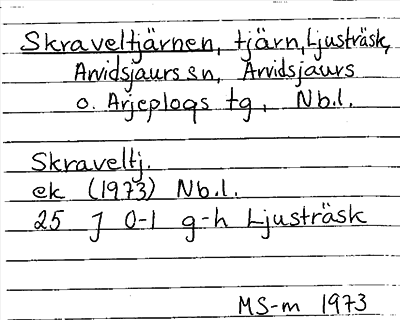 Skraveltjärnen, tjärn, Ljusträsk,
Arvidsjaurs sn, Arvidsjaurs
o. Arjeplogs tg, Nb.l.
Skraveltj.
ek (1973) Nb.l.
25 J 0-1 g-h Ljusträsk
MS-m 1973